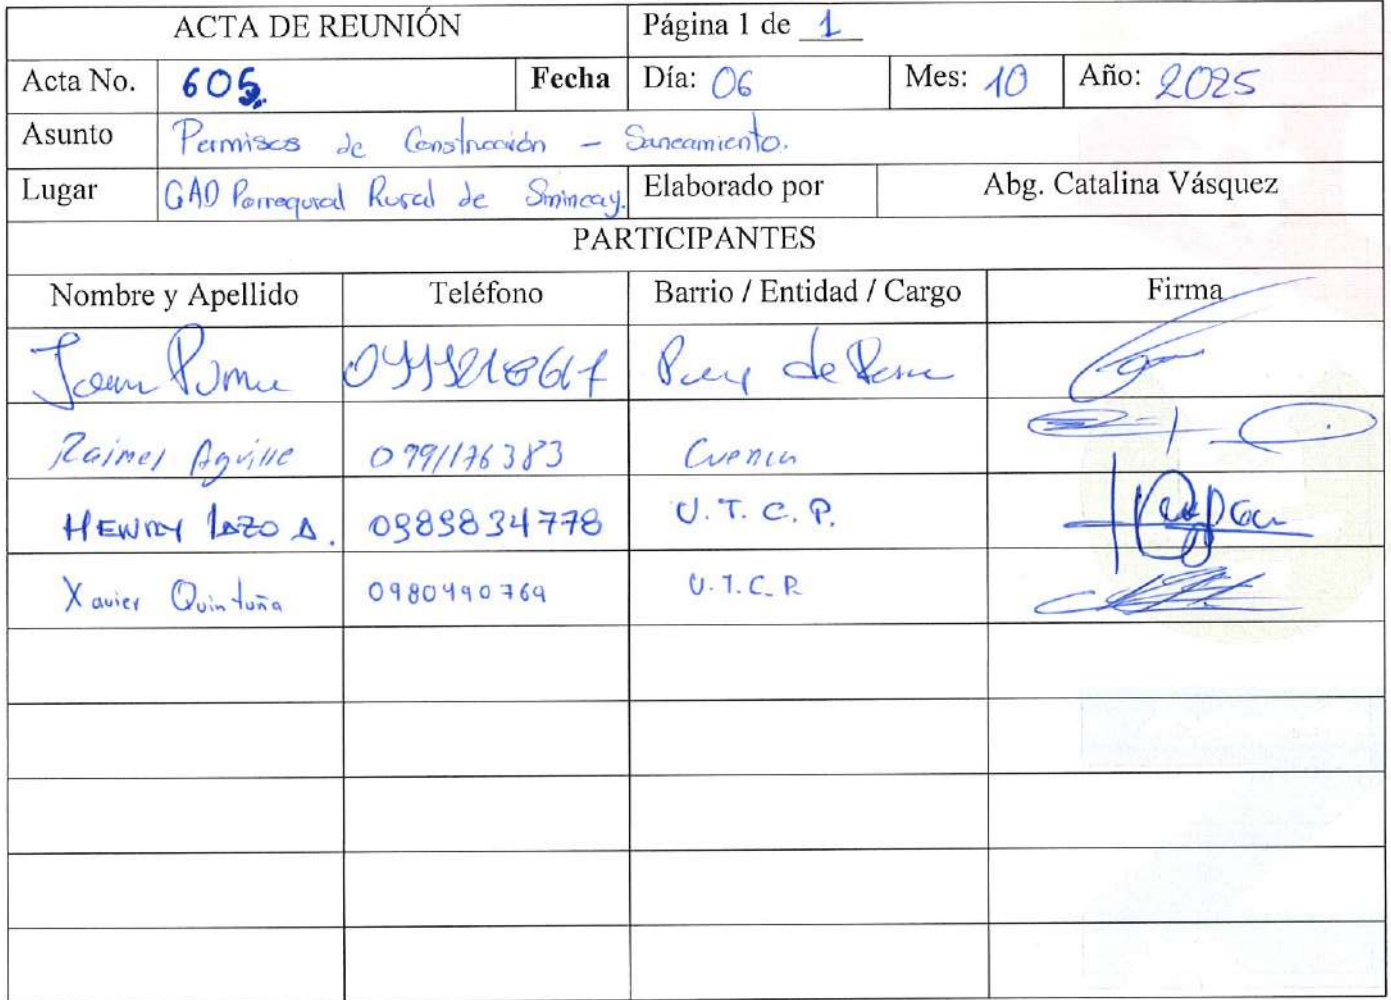 ACTA DE REUNIÓN Página 1 de 1
Acta No. 605 Fecha Día: 06 Mes: 10 Año: 2025
Asunto Permisos de Construcción - Saneamiento.
Lugar GAD Parroquial Rural de Sinincay. Elaborado por Abg. Catalina Vásquez
PARTICIPANTES
Nombre y Apellido Teléfono Barrio / Entidad / Cargo Firma
Juan de
Raimel 0991176383 Cuenca
HENRY LAZO A. 0989834778 U.T.C.P.
Xavier Quintuña 0980490769 U.T.C.P.